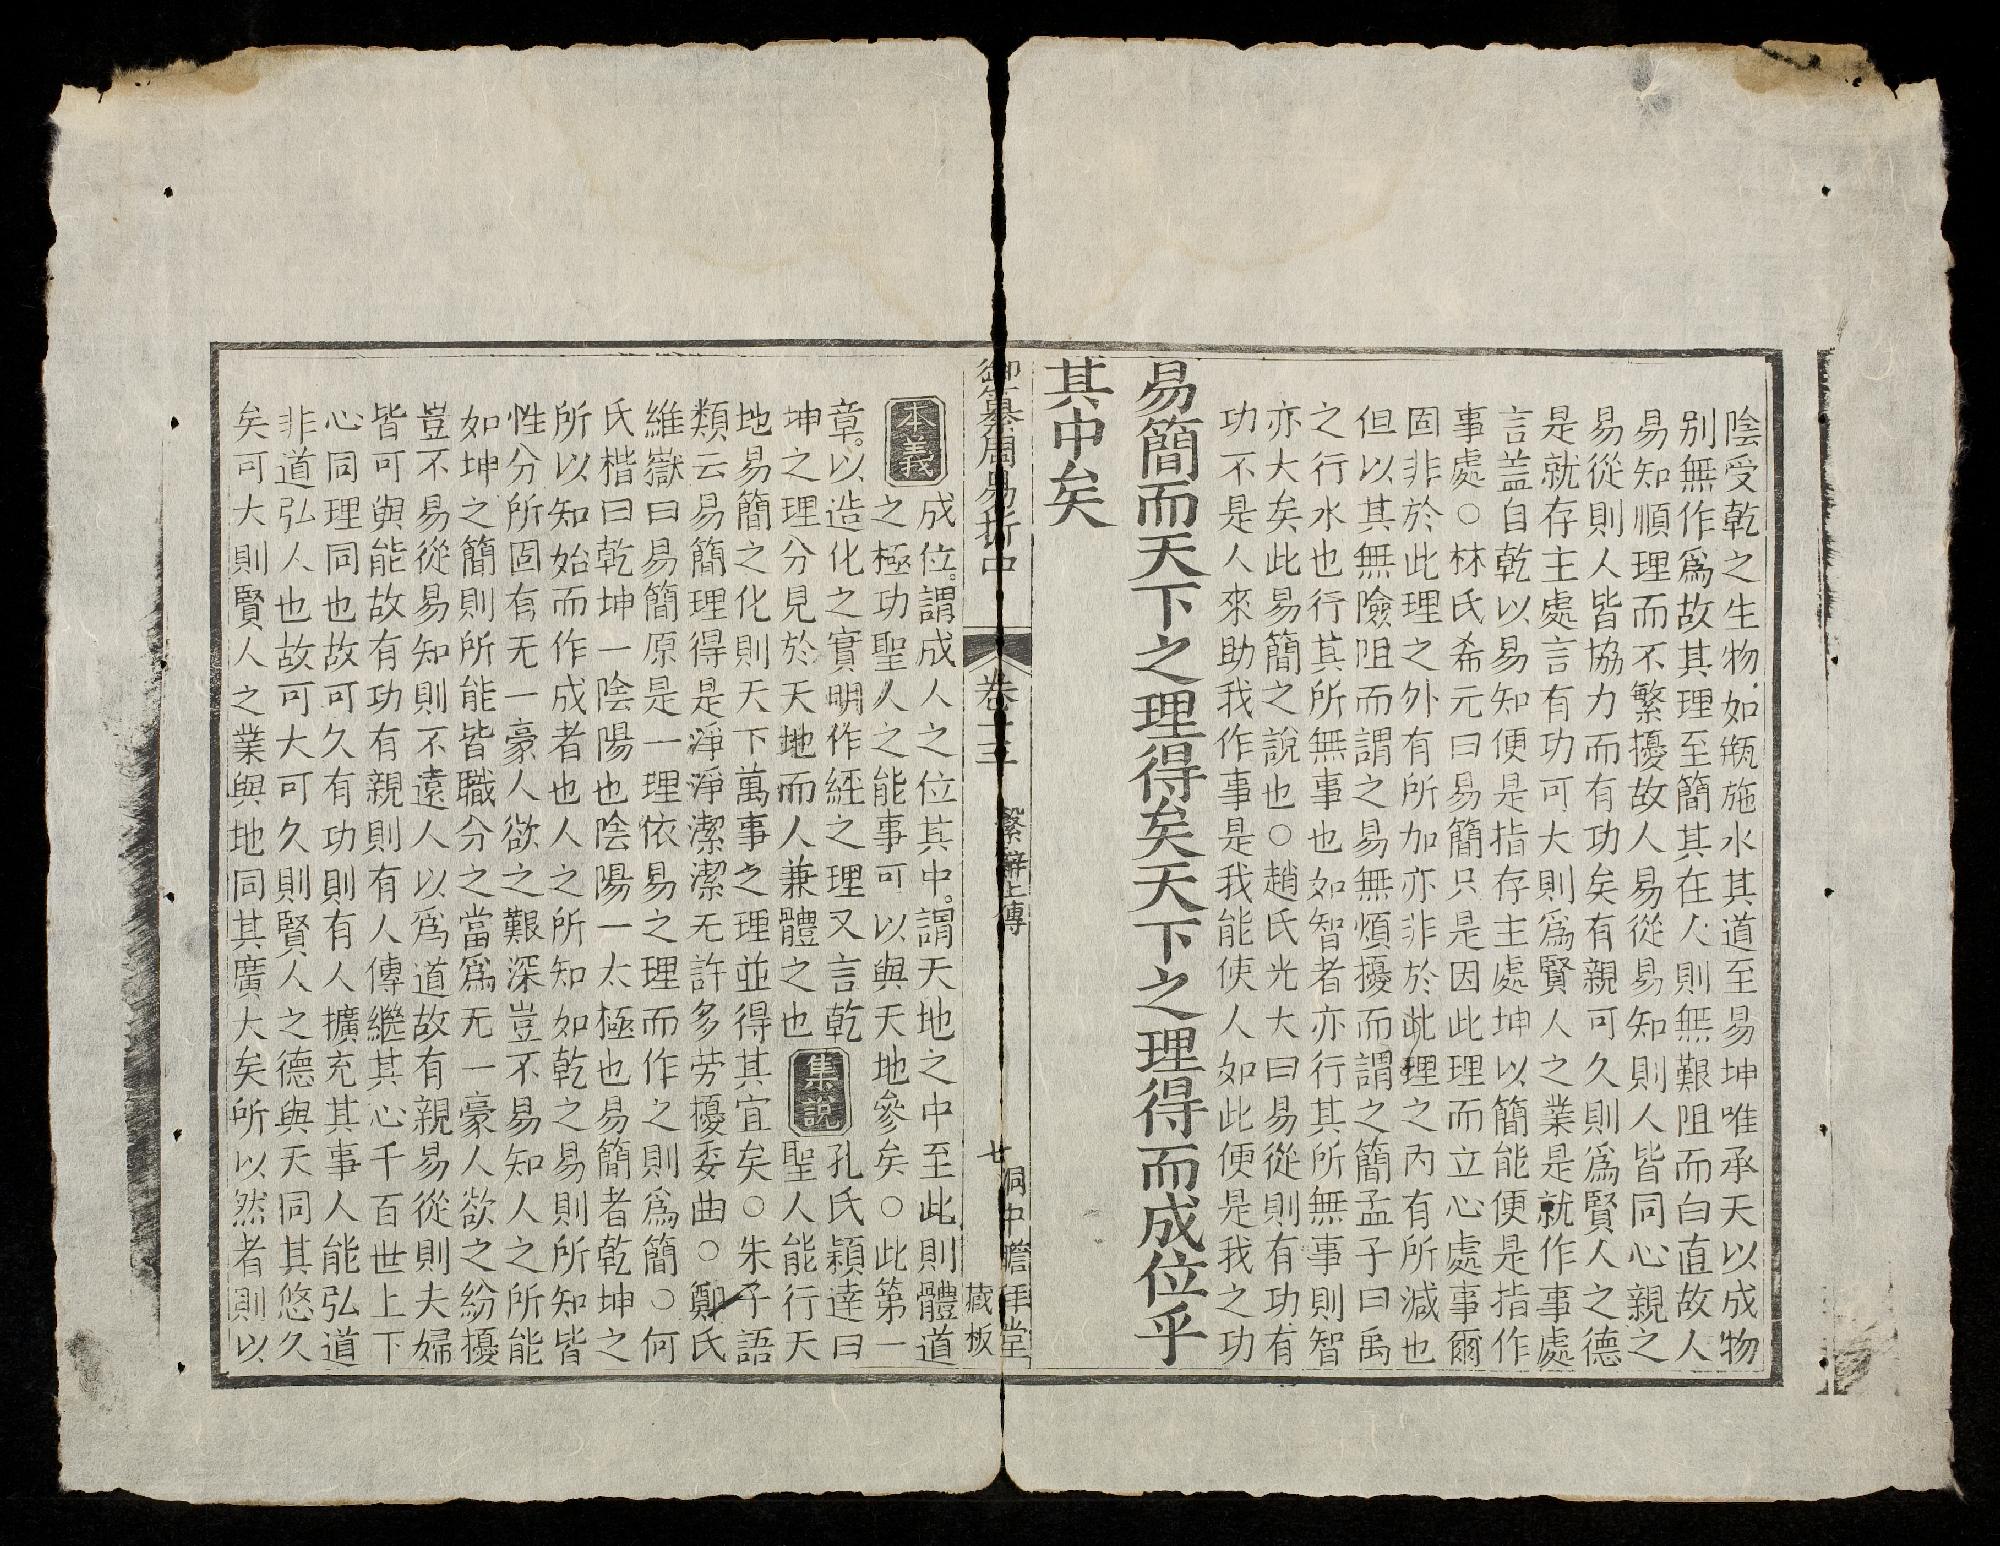 陰受乾之生物如瓶施水其道至易坤唯承天以成物
別無作爲故其理至簡其在人則無艱阻而白直故人
易知順理而不繁擾故人易從易知則人皆同心親之
易從則人皆協力而有功矣有親可久則爲賢人之德
是就存主處言有功可大則爲賢人之業是就作事處
言盖自乾以易知便是指存主處坤以簡能便是指作
事處○林氏希元曰易簡只是因此理而立心處事爾
固非於此理之外有所加亦非於此理之內有所減也
但以其無險阻而謂之易無煩擾而謂之簡孟子曰禹
之行水也行其所無事也如智者亦行其所無事則智
亦大矣此易簡之說也○趙氏光大曰易從則有功有
功不是人來助我作事是我能使人如此便是我之功
易簡而天下之理得矣天下之理得而成位乎
其中矣
御纂周易折中 卷十三 繫辭上傳 七 洞中 堂藏板
本義 成位謂成人之位其中謂天地之中至此則體道
之極功聖人之能事可以與天地參矣○此第一
章以造化之實明作經之理又言乾
坤之理分見於天地而人兼體之也 集說 孔氏穎達曰
聖人能行天
地易簡之化則天下萬事之理並得其宜矣○朱子語
類云易簡理得是淨淨潔潔无許多劳擾委曲○鄭氏
維嶽曰易簡原是一理依易之理而作之則爲簡○何
氏楷曰乾坤一陰陽也陰陽一太極也易簡者乾坤之
所以知始而作成者也人之所知如乾之易則所知皆
性分所固有无一豪人欲之艱深豈不易知人之所能
如坤之簡則所能皆職分之當爲无一豪人欲之紛擾
豈不易從易知則不遠人以爲道故有親易從則夫婦
皆可與能故有功有親則有人傳繼其心千百世上下
心同理同也故可久有功則有人擴充其事人能弘道
非道弘人也故可大可久則賢人之德與天同其悠久
矣可大則賢人之業與地同其廣大矣所以然者則以